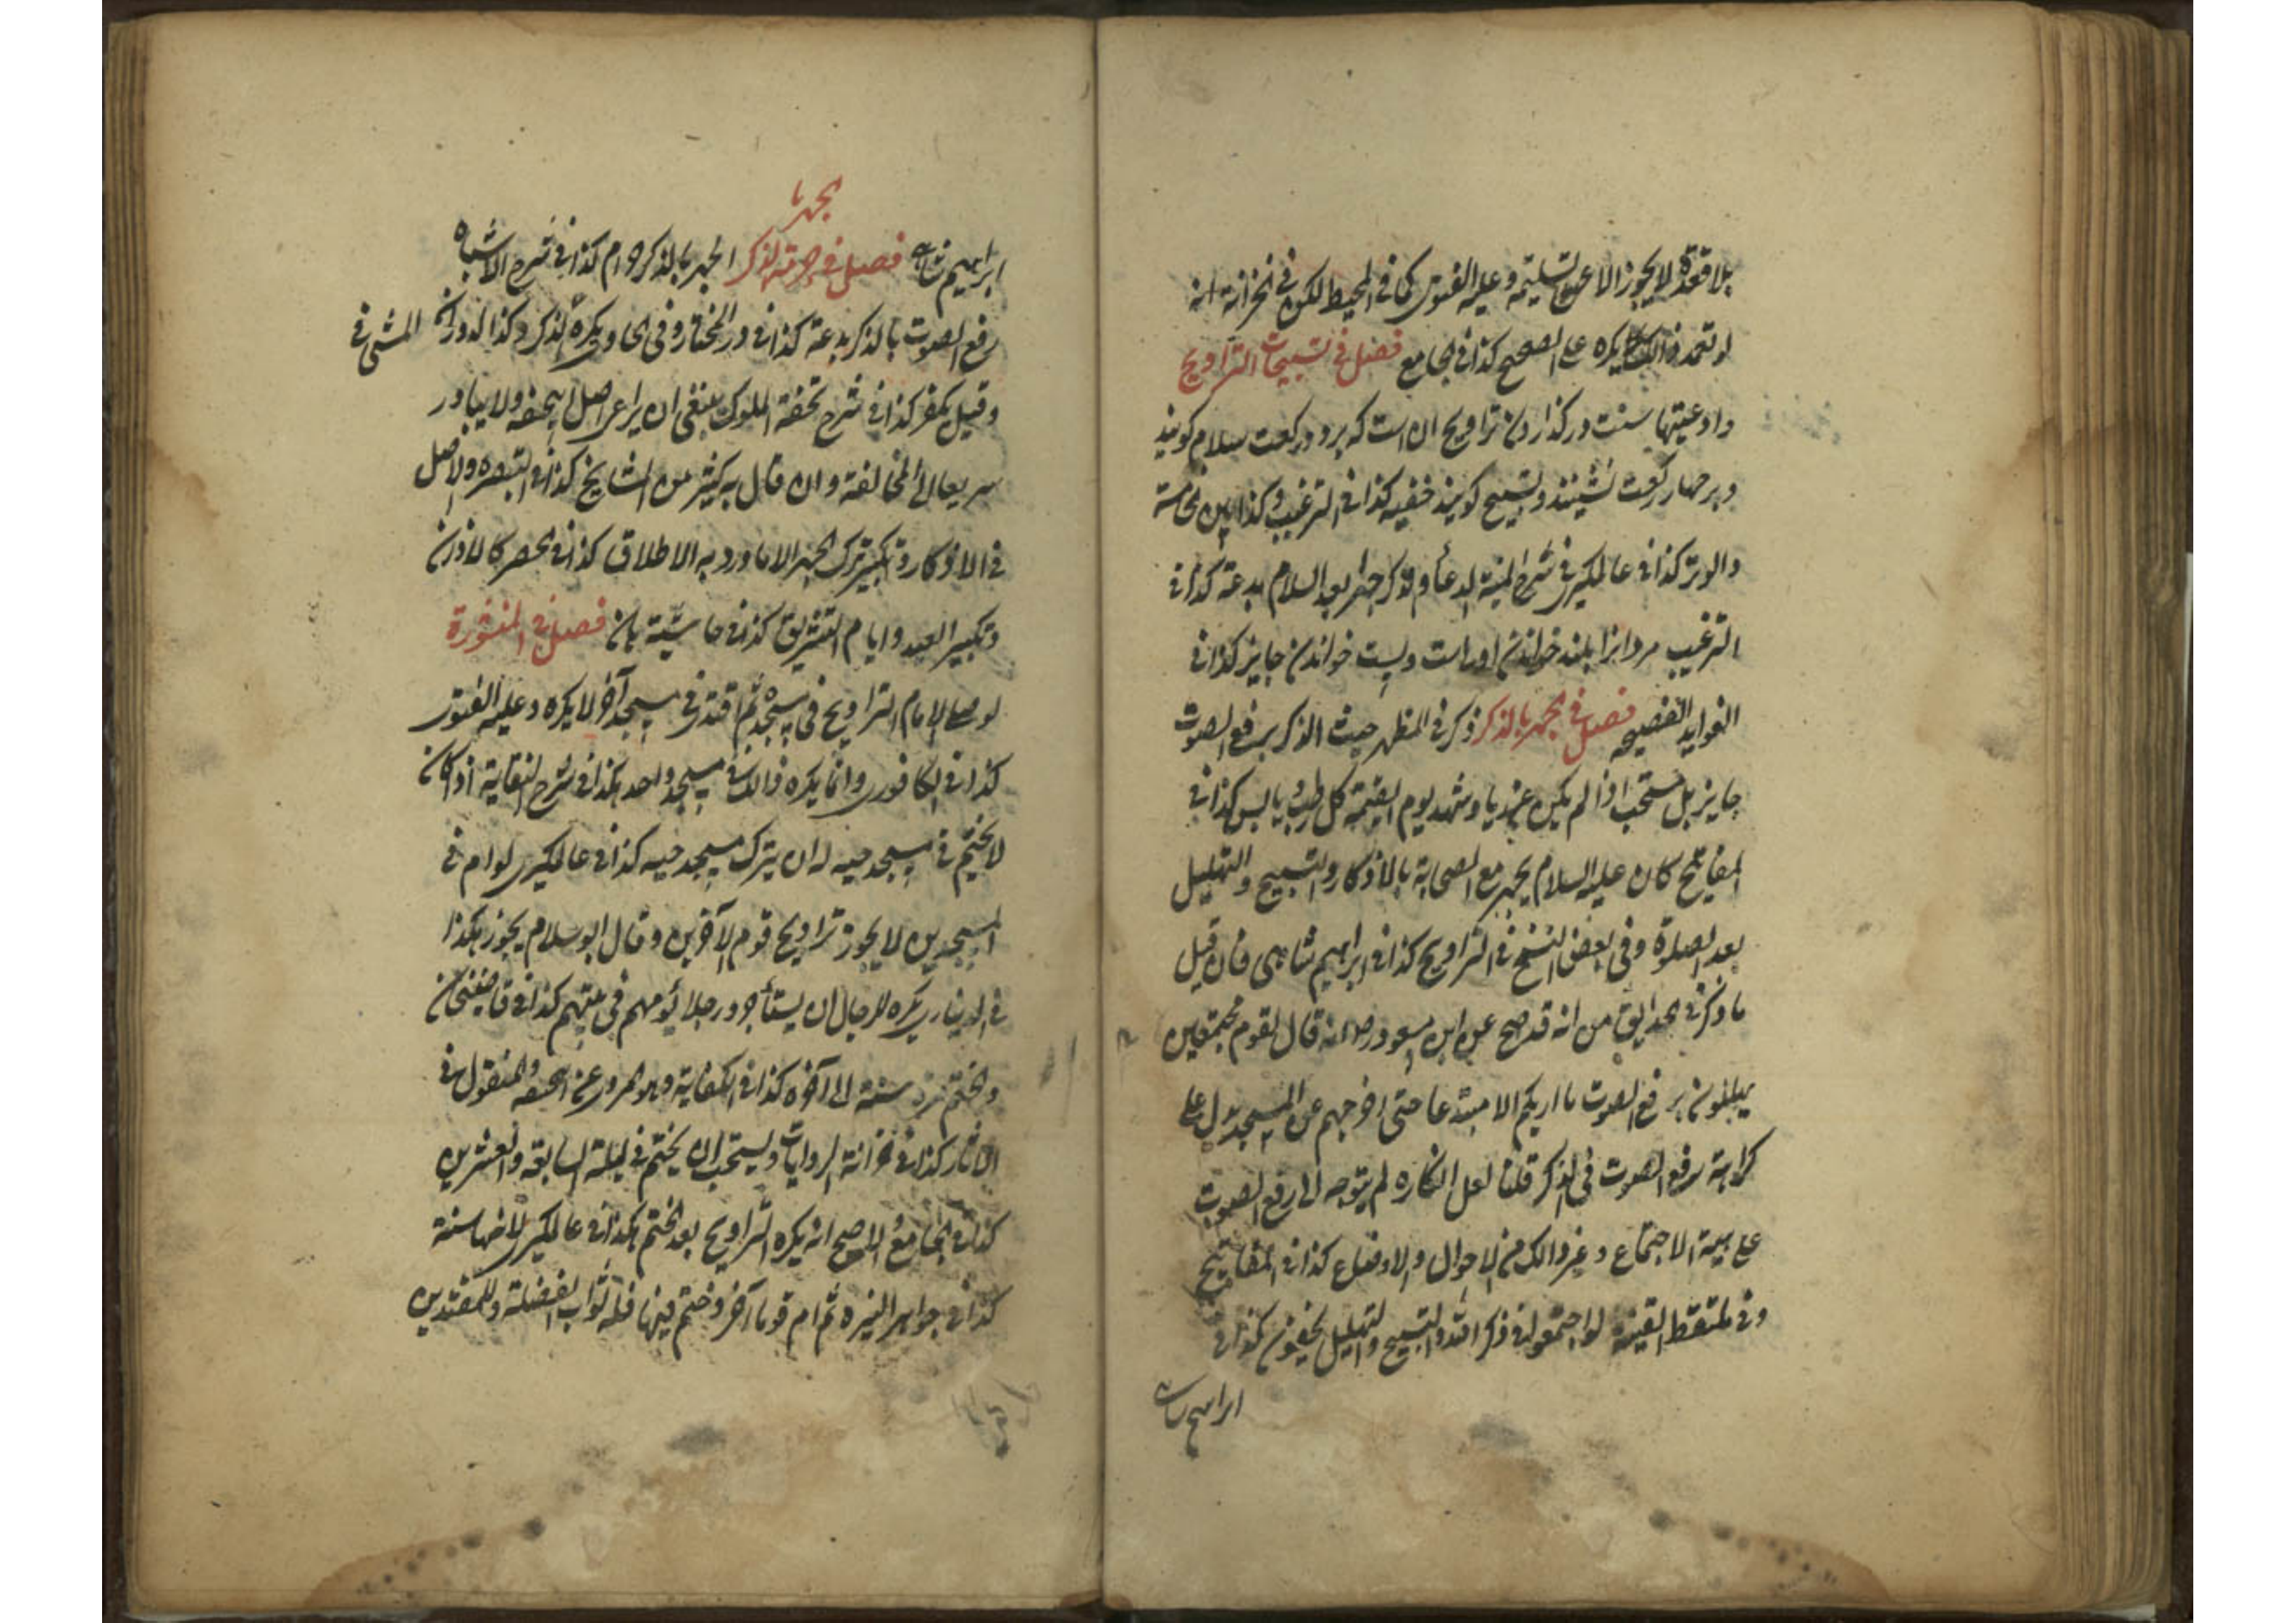 بلا قعدة لا يجوز الا عن تسليمة وعليه الفتوى كما في المحيط لكن في الخزانة انه
لو تعمد ذالك يكره على الصحيح كذا في الجامع فصل في تسبيحات التراويح
وادعيتها سنت در كذاردن تراويح ان است كه بر دو ركعت سلام كويند
وبر چهار ركعت نشينند وتسبيح كويند خفيه كذا في الترغيب وكذا بين الخامسة
والوتر كذا في عالمكيرى في شرح المنية الدعاء والذكر جهرا بعد السلام بدعة كذا في
الترغيب مردانرا بلند خواندن اورادست وپست خواندن جايز كذا في
الفوايد الفصيحه فصل في الجهر بالذكر ذكر في المظهر حيث الذكر برفع الصوت
جايز بل مستحب اذا لم يكن عن ريا وشهد يوم القيمة كل رطب ويابس كذا في
المفاتيح كان عليه السلام يجهر مع الصحابة بالاذكار والتسبيح والتهليل
بعد الصلوة وفي بعض النسخ في التراويح كذا في ابراهيم شاهى فان قيل
ما ذكر في الحدايق من انه قد صح عن ابن مسعود رض انه قال لقوم مجتمعين
يهللون برفع الصوت ما اريكم الا مبتدعا حتى اخرجهم عن المسجد يدل على
كراهة رفع الصوت في الذكر قلنا لعل انكاره لم يتوجه الى رفع الصوت
على هيئة الاجتماع وغير ذالك من الاحوال والاوضاع كذا في المفاتيح
وفي ملتقط القينه لو اجتمعوا في ذكر الله والتسبيح والتهليل يخفون كذا في
ابراهيم شاه
بالجهر
ابراهيم شاه فصل في حرمة الذكر الجهر بالذكر حرام كذا في شرح الاشباه
رفع الصوت بالذكر بدعة كذا في در المختار وفي الحاوى يكره الذكر وكذا الدوران المشى في
وقيل يكفر كذا في شرح تحفة الملوك ينبغى ان يراعى اصل ابيحنفه ولا يبادر
سريعا الى المخالفة وان قال به كثير من المشايخ كذا في التبصره والاصل
في الاذكار وتكبير ترك الجهر الا ما ورد به الاطلاق كذا في الحصر كالاذان
وتكبير العيد وايام التشريق كذا في حاشية فصل في المنثورة
لو صلى الامام التراويح في مسجد ثم اقتدى في مسجد آخر لا يكره وعليه الفتوى
كذا في الكافورى وانما يكره ذالك في مسجد واحد هكذا في شرح النقاية اذا كان
لا يختم في مسجد حيه له ان يترك مسجد حيه كذا في عالمكيرى لو ام في
المسجدين لا يجوز تراويح قوم الآخرين وقال ابو سلام يجوز هكذا
في الدينارى يكره للرجال ان يستأجروا رجلا يؤمهم في بيتهم كذا في قاضيخان
والختم مرة سنة الى آخره كذا في الكفاية وهو المروى عن ابيحنفه والمنقول في
الاثار كذا في خزانة الروايات ويستحب ان يختم في ليلة السابعة والعشرين
كذا في الجامع والاصح انه يكره التراويح بعد الختم هكذا في عالمكيرى لانها سنة
كذا في جواهر النيره ثم ام قوما آخر وختم فيها فله ثواب الفضيلة وللمقتدين